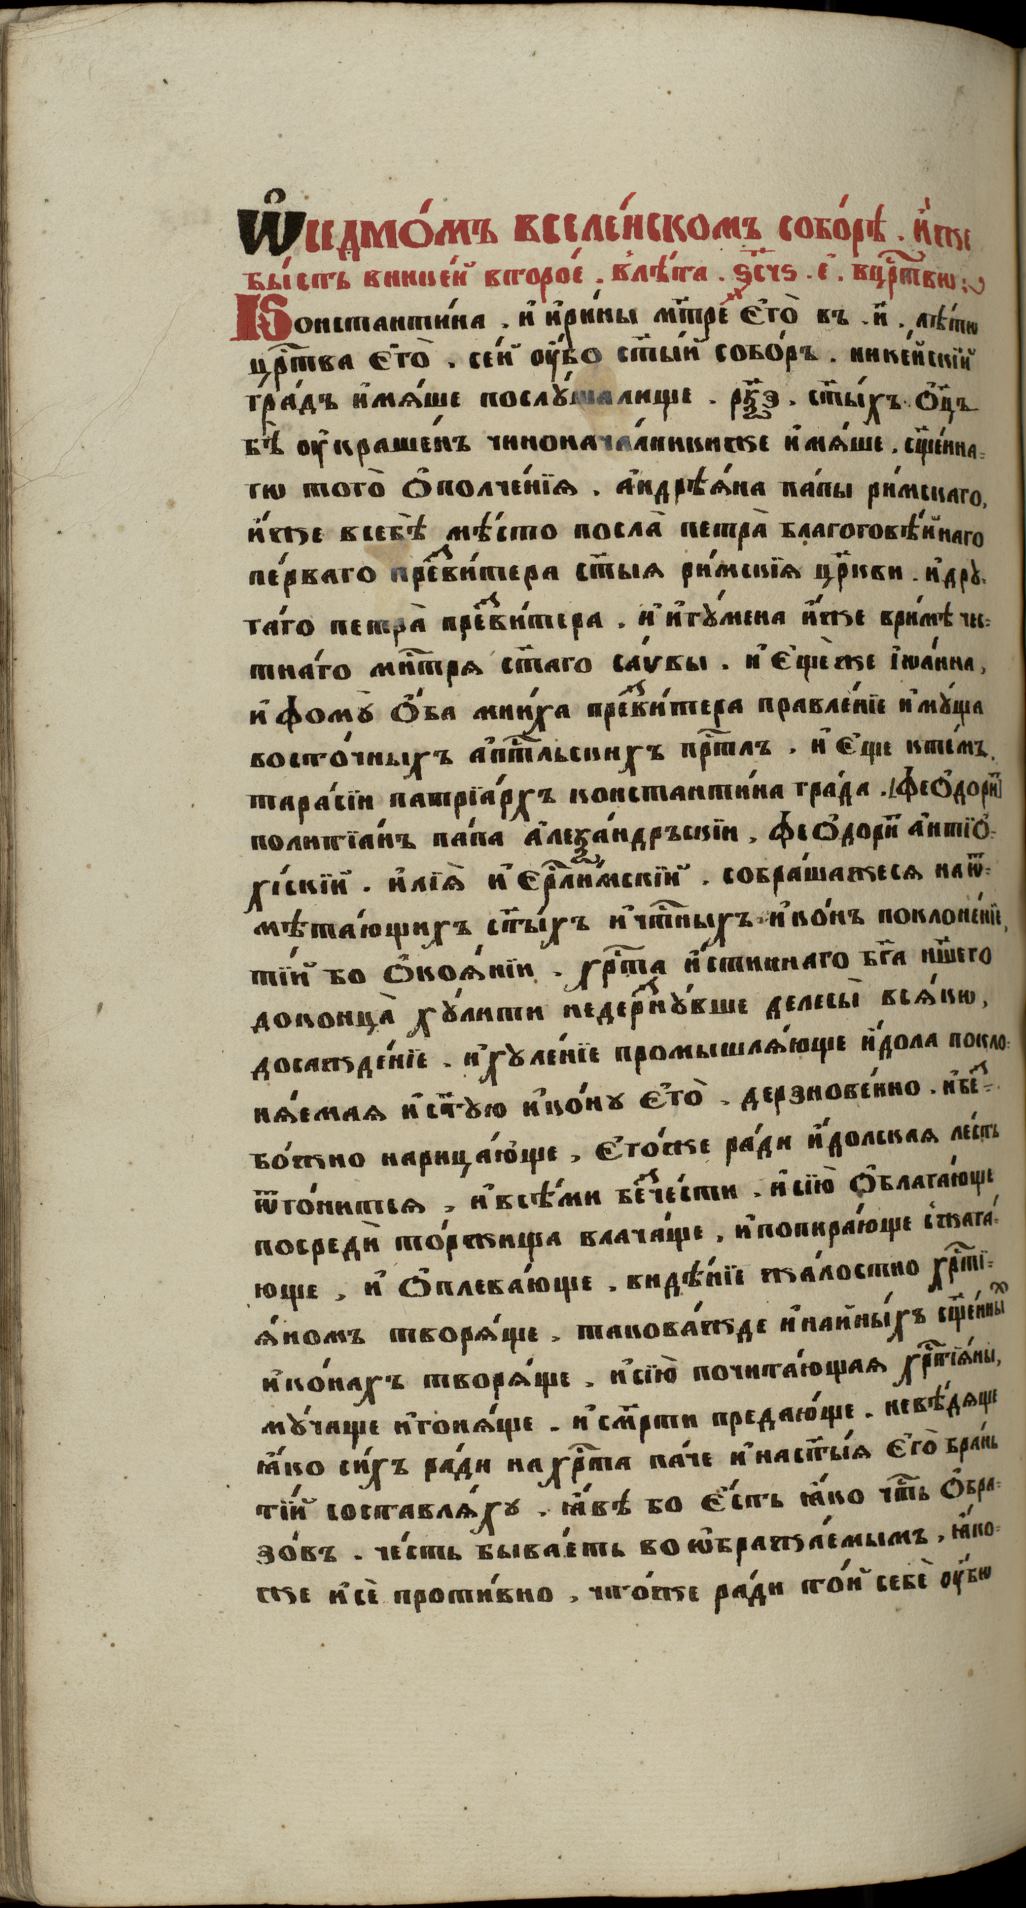 Ѡ҆ седмо́мъ вселе́нскомъ собо́рѣ . и҆́же
бы́сть вникеи́ второ́е . в̾лѣ́та . ѕ҃сч҃ѕ . е҃ . вцр҃твѡ
Константи́на , и҆ и҆ри́ны мт҃ре е҆го̀ въ . и҃ . лѣ́тѡ
цр҃тва е҆го̀ . се́й оу҆́бо ст҃ы́й собо́ръ . нике́йскїй
гра́дъ и҆мѧ́ше послу́шалище . рк҃ѯ . ст҃ы́хъ ѻ҆ц҃ъ
бѣ̀ оу҆краше́нъ чинонача́лникиже и҆мѧ́ше . сщ҃е́нна-
гѡ того̀ ѻ҆полче́нїѧ . а҆ндрѣѧ́на па́пы ри́мскаго,
и҆́же всебѣ̀ мѣ́сто посла̀ петра̀ благоговѣ́йнаго
пе́рваго преви́тера ст҃ыѧ ри́мскїѧ цр҃кви . и҆ дру-
га́го петра̀ преви́тера . и҆ и҆гу́мена и҆́же ври́мѣ че-
тна́го мн҃трѧ ст҃аго са́ѵвы . и҆ є҆ще́же і҆ѡа́нна,
и҆ фому̀ ѻ҆́ба мни́ха преви́тера правле́нїе и҆му́ща
восто́чныхъ а҆пт҃льскихъ пр҃тлъ . и҆ є҆ще ктѣ́мъ.
тара́сїи патрїа́рхъ константи́на гра́да . [ѳеѻ҆дори҃]
политїа́нъ па́па а҆леѯа́ндръскїи , ѳеѻ҆дори҃ а҆нтїѻ҆-
хі́скїй . и҆лїѧ̀ и҆ є҆рл҃и́мскїй . собра́шажесѧ наѿ-
мѣта́ющихъ ст҃ы́хъ и҆ чт҃ныхъ и҆ко́нъ поклоне́нїе,
ті́й бо ѻ҆коѧ́нїи . хр҃та и҆́стиннаго бг҃а нш҃его
доконца̀ ху́лити недерзну́вше делесы̀ всѧ́кѡ,
досажде́нїе . и҆ хуле́нїе промышлѧ́юще и҆́дола покло-
нѧ́емаѧ и҆ ст҃ую и҆ко́ну є҆го̀ . дерзнове́нно . и҆ бе-
бо́жно нарица́юще , є҆го́же ра́ди и҆́долскаѧ ле́сть
ѿго́нитсѧ , и҆ всѣ́ми бече́сти . и҆ сїю̀ ѻ҆блага́юще
посредѝ то́ржища влача́ще , и҆ попира́юще сжага́-
юще , и҆ ѻ҆плева́юще . видѣ́нїе жа́лостно хр҃тї-
ѧ́номъ творѧ́ще , такова́жде и҆ наи́ны́хъ сщ҃е́нны
и҆ко́нахъ творѧ́ще . и҆ сїю̀ почита́ющаѧ хр҃тїѧны,
му́чаще и҆ гонѧ́ще . и҆ см҃рти предаю́ще . невѣ́дѧще
ꙗ҆́ко си́хъ ра́ди на хр҃та па́че и҆ на ст҃ыѧ е҆го̀ бра́нь
ті́й составлѧ́ху . ꙗ҆́вѣ бо є҆́сть ꙗ҆́ко чт҃ь ѻ҆бра-
зо́въ . че́сть быва́етъ во ѡ҆бража́емымъ , ꙗ҆́ко-
же и҆ сѐ проти́вно , что́же ра́ди то́й себѐ оу҆́бѡ